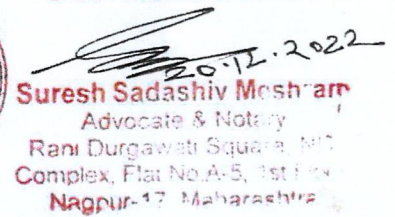 20.12.2022
Suresh Sadashiv Meshram
Advocate & Notary
Rani Durgawati Square,
Complex, Flat No.A-5, 1st
Nagpur-17, Maharashtra